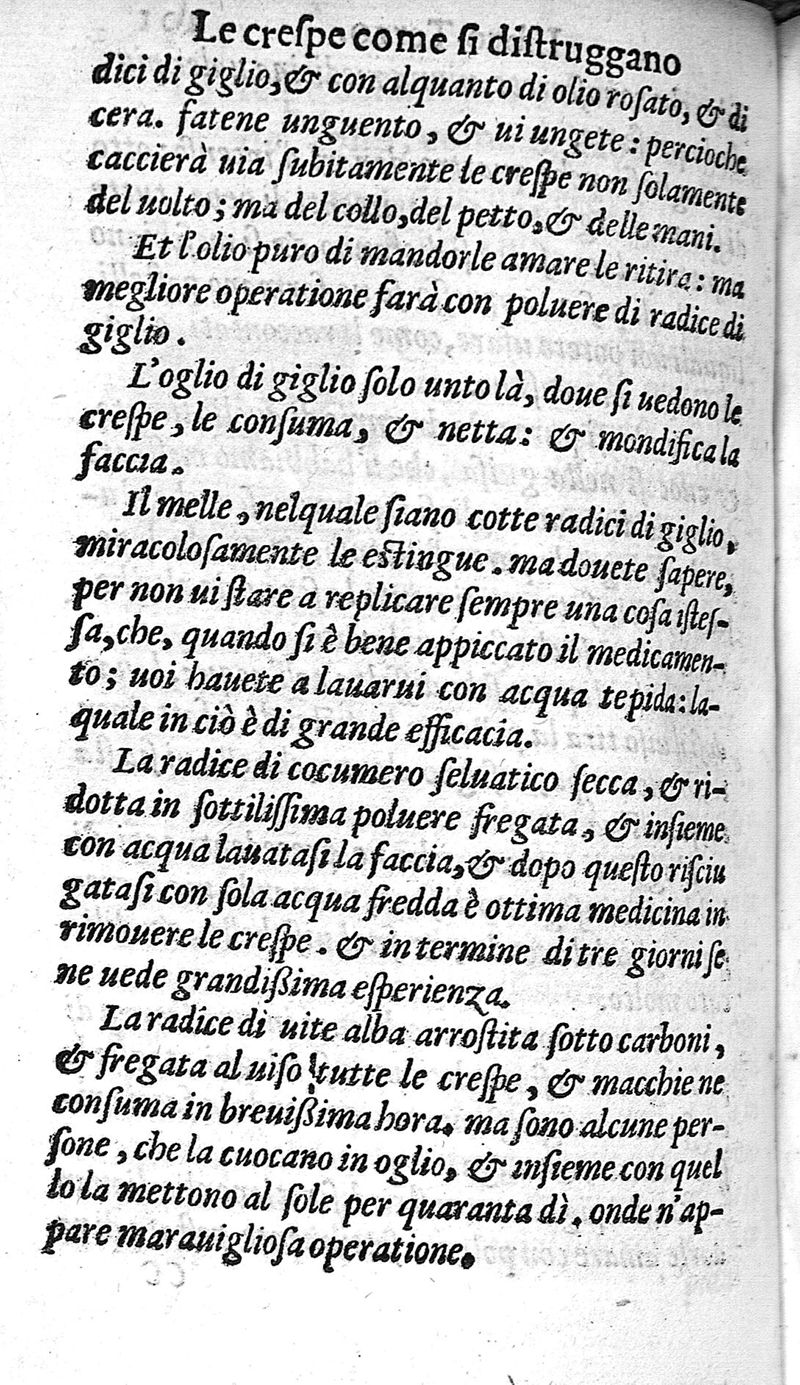 Le creſpe come ſi diſtruggano
dici di giglio, & con alquanto di olio roſato, & di
cera. fatene unguento, & ui ungete: percioche
caccierà uia ſubitamente le creſpe non ſolamente
del uolto; ma del collo, del petto, & delle mani.
Et l'olio puro di mandorle amare le ritira: ma
megliore operatione farà con poluere di radice di
giglio.
L'oglio di giglio ſolo unto là, doue ſi uedono le
creſpe, le conſuma, & netta: & mondifica la
faccia.
Il melle, nel quale ſiano cotte radici di giglio,
miracoloſamente le eſtingue. ma douete ſapere,
per non ui ſtare a replicare ſempre una coſa iſteſ-
ſa, che, quando ſi è bene appiccato il medicamen-
to; uoi hauete a lauarui con acqua tepida: la-
quale in ciò è di grande efficacia.
La radice di cocumero ſeluatico ſecca, & ri-
dotta in ſottiliſſima poluere fregata, & inſieme
con acqua lauataſi la faccia, & dopo queſto riſciu
gataſi con ſola acqua fredda è ottima medicina in
rimouere le creſpe. & in termine di tre giorni ſe
ne uede grandißima eſperienza.
La radice di uite alba arroſtita ſotto carboni,
& fregata al uiſo tutte le creſpe, & macchie ne
conſuma in breuißima hora. ma ſono alcune per-
ſone, che la cuocano in oglio, & inſieme con quel
lo la mettono al ſole per quaranta dì. onde n'ap-
pare marauiglioſa operatione.